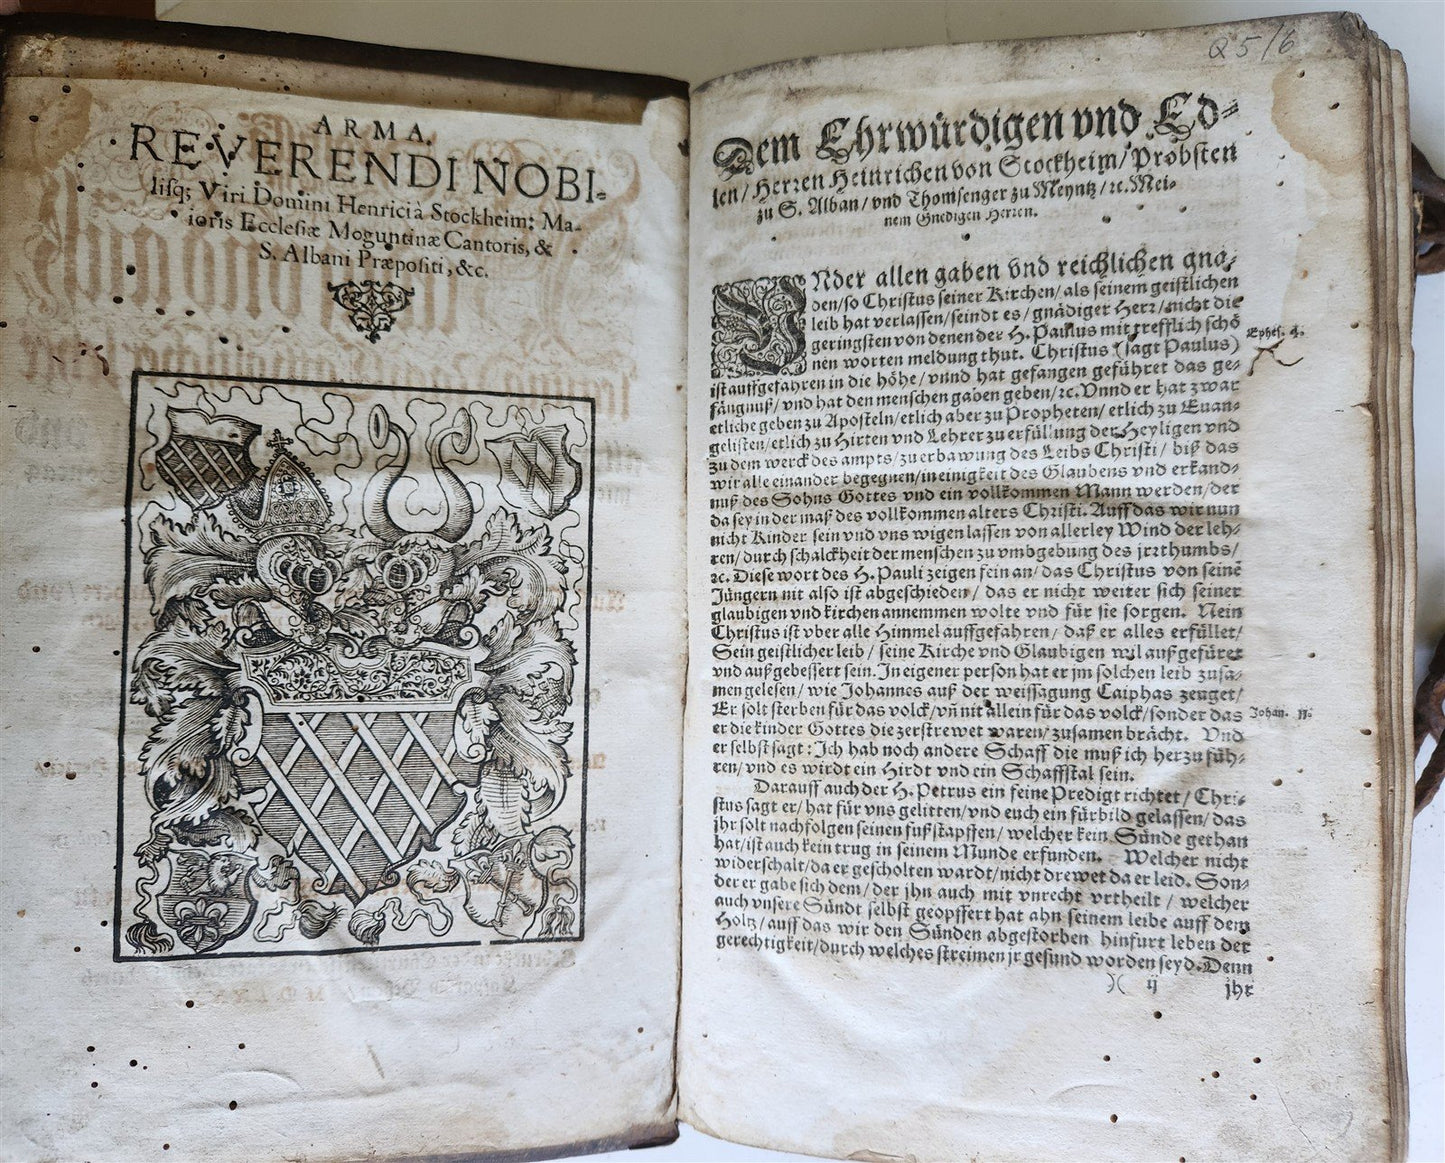 ARMA.
REVERENDI NOBI-
lisq; Viri Domini Henrici à Stockheim: Ma-
ioris Ecclesiæ Moguntinæ Cantoris, &
S. Albani Præpositi, &c.
Q 5/6
Dem Ehrwürdigen vnd Ed-
len/ Herren Heinrichen von Stockheim/ Probsten
zu S. Alban/ vnd Thomsenger zu Meyntz/ ꝛc. Mei-
nem Gnedigen Herren.
VNder allen gaben vnd reichlichen gna-
den/ so Christus seiner Kirchen/ als seinem geistlichen
leib hat verlassen/ seindt es/ gnädiger Herr/ nicht die
geringsten von denen der H. Paulus mit trefflich schö
nen worten meldung thut. Christus (sagt Paulus)
Ephes. 4.
ist auffgefahren in die höhe/ vnnd hat gefangen geführet das ge-
fängnuß/ vnd hat den menschen gaben geben/ ꝛc. Vnnd er hat zwar
etliche geben zu Aposteln/ etlich aber zu Propheten/ etlich zu Euan-
gelisten/ etlich zu Hirten vnd Lehrer zu erfüllung der Heyligen vnd
zu dem werck des ampts/ zu erbawung des Leibs Christi/ biß das
wir alle einander begegnen/ in einigkeit des Glaubens vnd erkand-
nuß des Sohns Gottes vnd ein vollkommen Mann werden/ der
da sey in der maß des vollkommen alters Christi. Auff das wir nun
nicht Kinder sein vnd vns wigen lassen von allerley Wind der leh-
ren/ durch schalckheit der menschen zu vmbgebung des jrrthumbs/
ꝛc. Diese wort des H. Pauli zeigen fein an/ das Christus von seinē
Jüngern nit also ist abgeschieden/ das er nicht weiter sich seiner
glaubigen vnd kirchen annemmen wolte vnd für sie sorgen. Nein
Christus ist vber alle Himmel auffgefahren/ daß er alles erfüllet/
Sein geistlicher leib/ seine Kirche vnd Glaubigen wil außgefüret
vnd außgebessert sein. In eigener person hat er jm solchen leib zusa-
men gelesen/ wie Johannes auß der weissagung Caiphas zeuget/
Er solt sterben für das volck/ vñ nit allein für das volck/ sonder das
Johan. 11.
er die kinder Gottes die zerstrewet waren/ zusamen brächt. Vnd
er selbst sagt: Ich hab noch andere Schaff die muß ich herzu füh-
ren/ vnd es wirdt ein Hirdt vnd ein Schaffstal sein.
Darauff auch der H. Petrus ein feine Predigt richtet/ Chri-
stus sagt er/ hat für vns gelitten/ vnd euch ein fürbild gelassen/ das
jhr solt nachfolgen seinen fußstapffen/ welcher kein Sünde gethan
hat/ ist auch kein trug in seinem Munde erfunden. Welcher nicht
widerschalt/ da er gescholten wardt/ nicht drewet da er leid. Son-
der er gabe sich dem/ der jhn auch mit vnrecht vrtheilt/ welcher
auch vnsere Sündt selbst geopffert hat ahn seinem leibe auff dem
Holtz/ auff das wir den Sünden abgestorben hinfurt leben der
gerechtigkeit/ durch welches streimen jr gesund worden seyd. Denn
)( ij
jhr